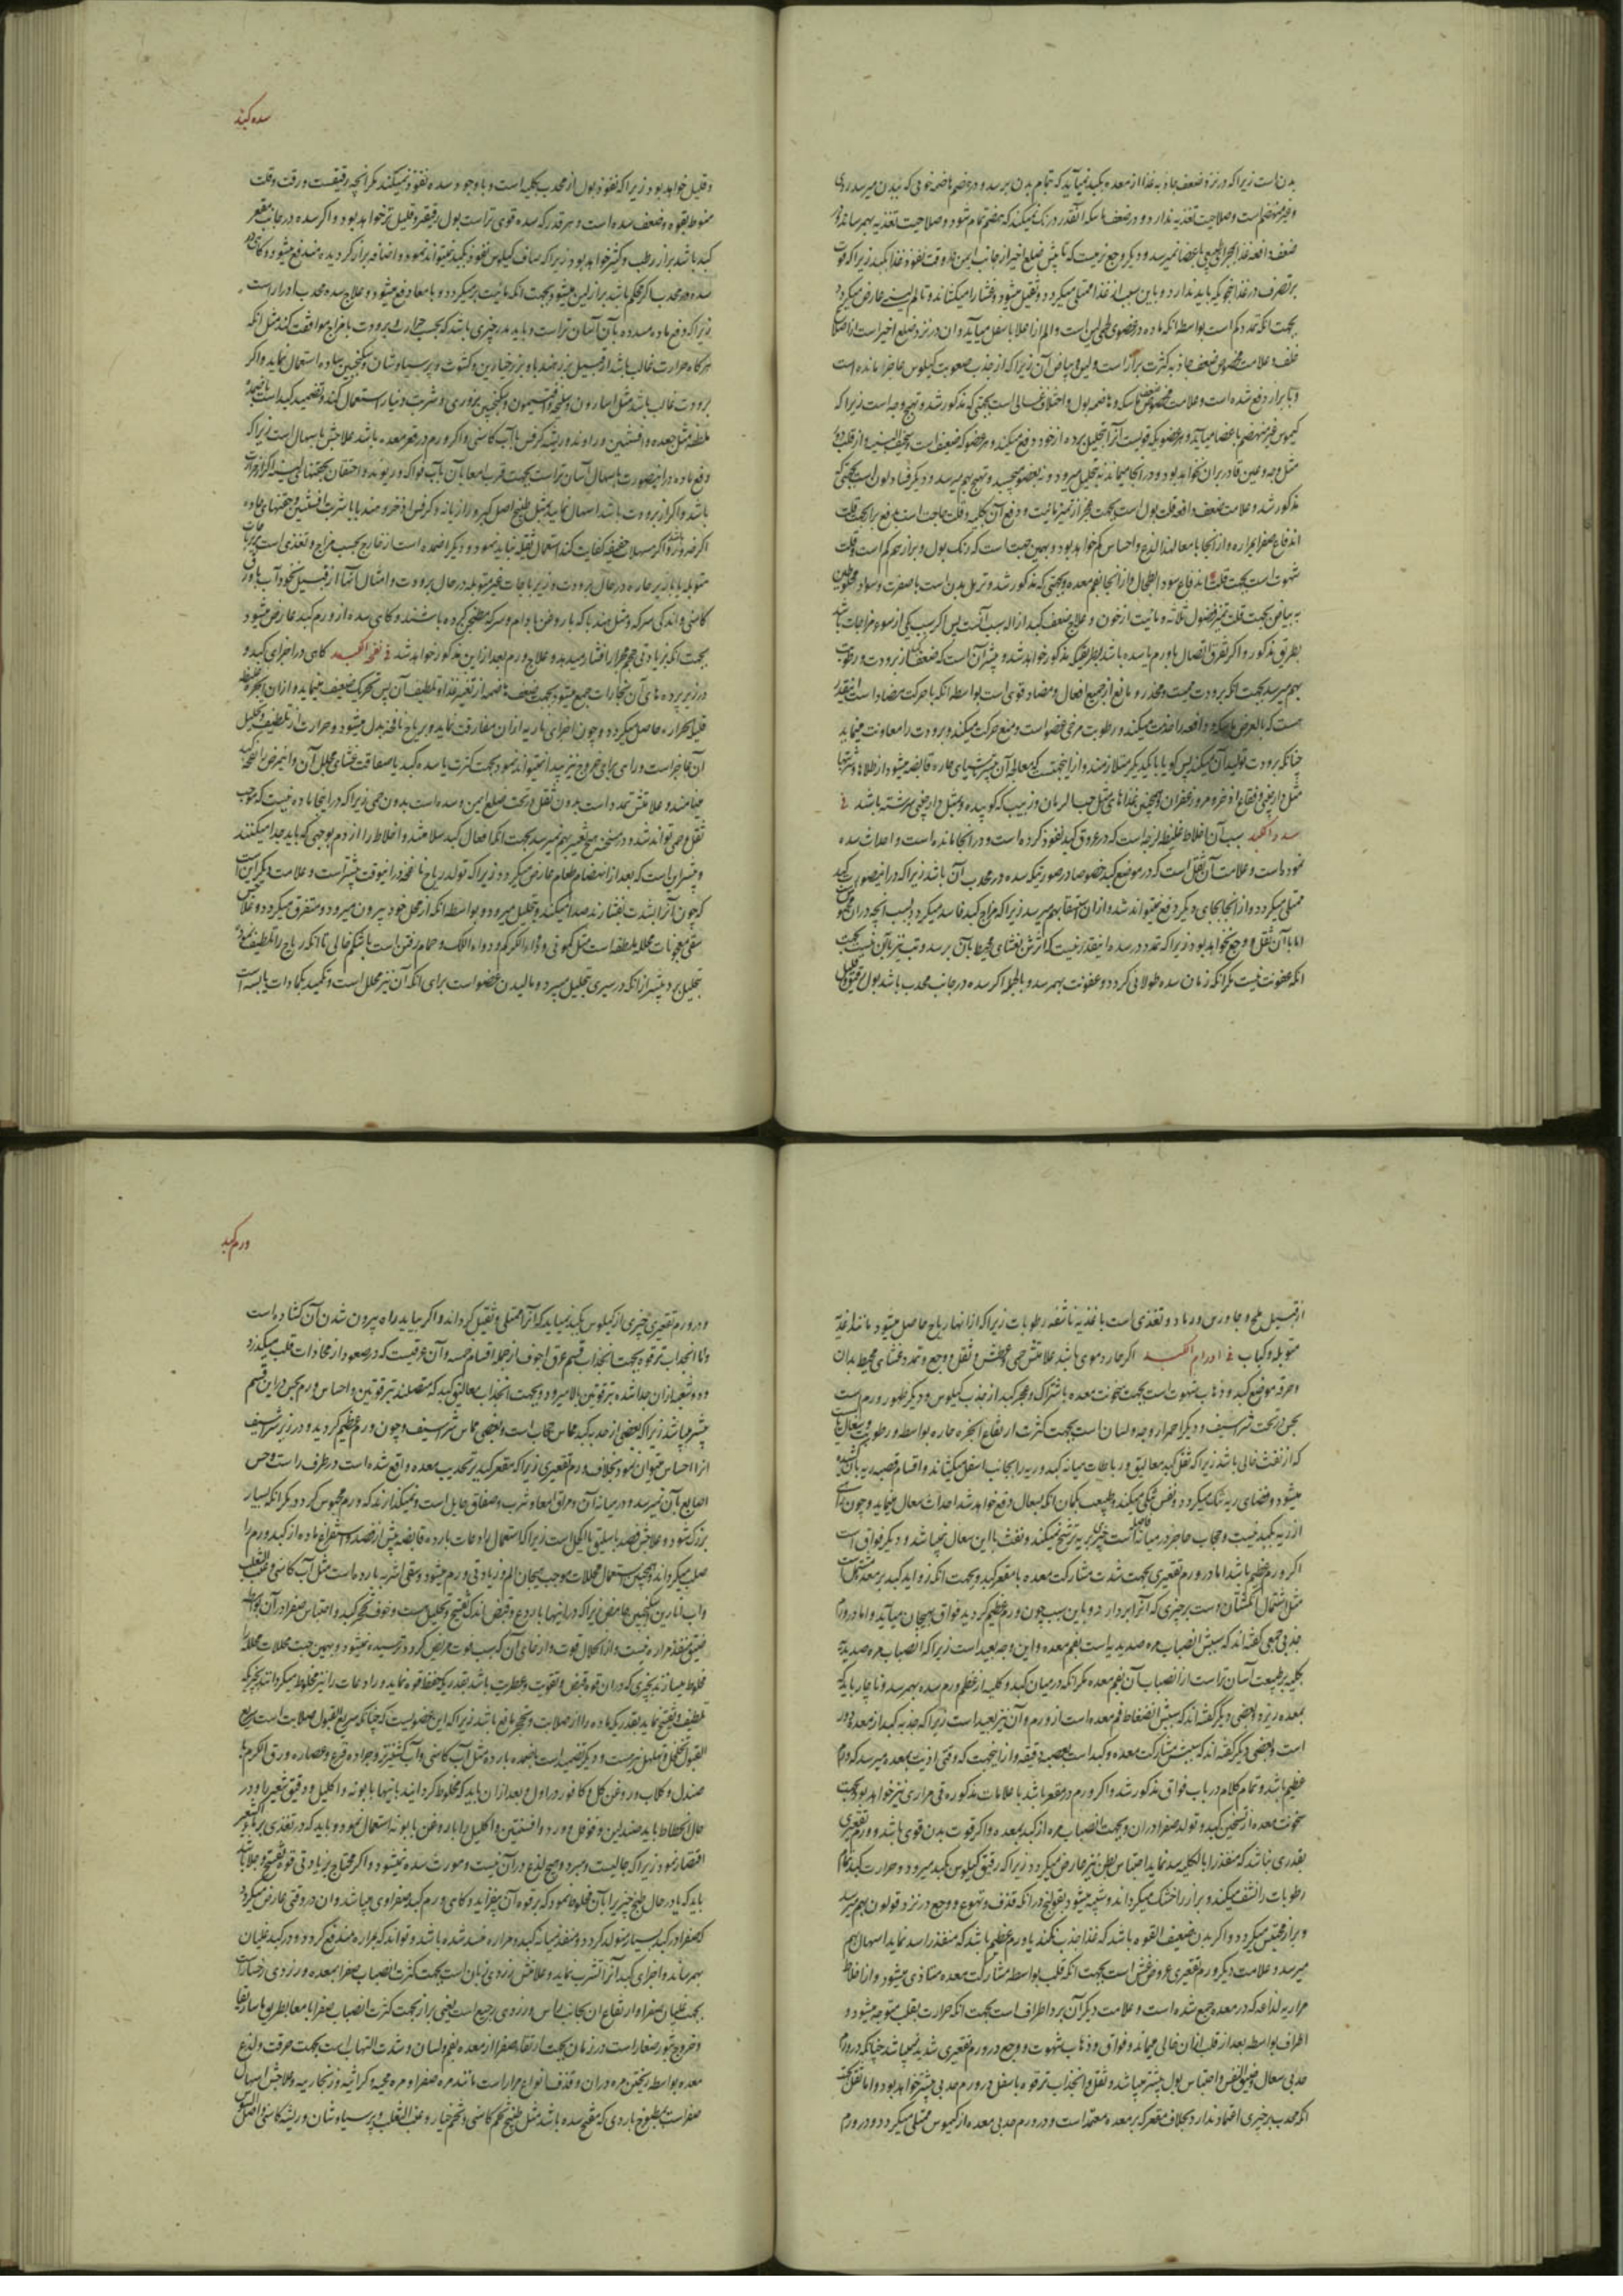 بدن است زیرا که در نزد ضعف جاذبه غذا از معده بکبد نمیآید که تمام بدن برسد و در هضم هاضمه خونی که ببدن میرسد ردی
و غیر منهضم است و صلاحیت تغذیه ندارد و در ضعف ماسکه آنقدر درنگ نمیکند که هضم تمام شود و صلاحیت تغذیه بهمرساند و در
ضعف دافعه غذا باعضا نمیرسد و دیگر وجع نرمیست که تا پیش ضلع اخیر از جانب ایمن در وقت نفوذ غذا بکبد زیرا که قوت
بر تصرف در غذا چنانکه باید ندارد و باین سبب از غذا ممتلی میگردد و ثقیل میشود و غشا را میکشاند و تا الم لینی عارض میگردد
بجهت آنکه تمدد کم است بواسطه آنکه ماده در عضوی لحمی لین است و الم از اعلا باسفل میآید و آن در نزد ضلع اخیر است از اضلاع
خلف و علامت مخصوص ضعف جاذبه کثرت براز است و لین و بیاض آن زیرا که از جذب صعوبت کیلوس عاجز مانده است
و با براز دفع شده است و علامت مخصوص ضعف ماسکه و هاضمه بول و اختلاف غسالی است بجهتی که مذکور شد و تهیج وجه است زیرا که
کیموس غیر منهضم باعضا میآید و هر عضو که قویست آنرا تحلیل برده از خود دفع میکند و هر عضو که ضعیف است
مثل وجه و عین قادر بر آن نخواهد بود و در آنجا میماند نه بتحلیل میرود و نه بعضو میچسبد و تهیج بهم میرسد و دیگر فساد لون است بجهتی که
مذکور شد و علامت ضعف دافعه قلت بول است بجهت عجز از تمیز مائیت و دفع آن بکلیه و قلت حاجت است بدفع براز بجهت قلت
اندفاع صفرا بمراره و از آنجا بامعا لهذا لذع و احساس کم خواهد بود و بهمین جهت است که رنگ بول و براز هم کم است و قلت
شهوت است بجهت قلت اندفاع سودا بطحال و از آنجا بفم معده و بجهتی که مذکور شد و ترهل بدن است با صفرت و سواد مخلوطین
به بیاض بجهت قلت تمیز فضول ثلاثه و مائیت از خون و علاج ضعف کبد ازاله سبب آنست پس اگر سبب یکی از سوء مزاجات باشد
بطریق مذکور و اگر تفرق اتصال یا ورم یا سده باشد بطریقی که مذکور خواهد شد و بیشتر آن است که ضعف کبد از برودت و رطوبت
بهم میرسد بجهت آنکه برودت ممیت و مخدر و مانع از جمیع افعال و مضاد قوی است بواسطه آنکه با حرکت مضاد است اینقدر
هست که بالعرض ماسکه و دافعه را خدمت میکند و رطوبت مرخی عضو است و منع حرکت میکند و برودت را معاونت مینماید
چنانکه برودت تولید آن میکند پس گویا با یکدیگر متلازمند و از اینجهت که معالجه آن بیشتر باشیای حاره قابضه میشود از طلاها و شربتها
مثل دارچینی و فقاع اذخر و مر و زعفران و همچنین غذاهای مثل حب الرمان و زبیب که کوبیده و بمثل دارچینی سرشته باشد فی
سدد الکبد سبب آن اخلاط غلیظ لزجه است که در عروق کبد نفوذ کرده است و در آنجا مانده است و احداث سده
نموده است و علامت آن ثقل است که در موضع کبد خصوصا در صورتیکه سده در محدب آن باشد زیرا که در اینصورت کبد
ممتلی میگردد و از آنجا بجای دیگر دفع نمیتواند شد و از آن استسقا بهم میرسد زیرا که مزاج کبد فاسد میگردد بسبب آنچه در آن محتبس
اما با آن ثقل و وجع نخواهد بود زیرا که تمدد در سده اینقدر نیست که اثرش بغشای محیط بآن برسد و تب نیز بآن نیست بجهت
آنکه عفونت نیست مگر آنکه زمان سده طولانی گردد و عفونت بهمرسد و بالجمله اگر سده در جانب محدب باشد بول رقیق و قلیل
سده کبد
و قلیل خواهد بود زیرا که نفوذ بول از محدب بکلیه است و با وجود سده نفوذ نمیکند مگر آنچه رقیقست و رقت و قلت
منوط بقوه و ضعف سده است و هر قدر که سده قوی تر است بول رقیقتر و قلیل تر خواهد بود و اگر سده در جانب مقعر
کبد باشد براز رطب و کثیر خواهد بود زیرا که صاف کیلوس نفوذ بکبد نمیتواند نمود و اضافه براز گردیده مندفع میشود و گاهی
سده محدب اگر محکم باشد براز لین میشود بجهت آنکه مائیت برمیگردد و بامعا دفع میشود و علاج سده محدب ادرار است
زیرا که دفع ماده مسدوده بآن آسان تر است و باید بدر چیزی باشد که بحسب حرارت و برودت با مزاج موافقت کند مثل آنکه
هرگاه حرارت غالب باشد از قبیل بزر هندبا و بزر خیارین و کشوث و پرسیاوشان و سکنجبین ساده استعمال نماید و اگر
برودت غالب باشد مثل اسارون و سلیخه و افتیمون و سکنجبین بزوری و شربت دینار استعمال کند و تضمید کبد است باضمده
ملطفه مثل جعده و افسنتین و راوند و ریشه کرفس با آب کاسنی و اگر ورم در مقعر معده باشد علاجش باسهال است زیرا که
دفع ماده در اینصورت باسهال آسان تر است بجهت قرب امعا بآن بآب فواکه و ریوند و احتقان بحقنهای لینه اگر از حرارت
باشد و اگر از برودت باشد اسهال نماید بمثل طبیخ اصل کبر و رازیانه و کرفس و اذخر و هندبا با شربت افسنتین و حقنهای حاده
اگر ضرور باشد و اگر مسهلات خفیفه کفایت کند استعمال ثقیله نباید نمود و دیگر اضمده است از خارج بحسب مزاج و تغذی است بمزورات
متبوله یا بابازیر حاره در حال برودت و زیرباجات غیر متوبله در حال برودت و امثال آنها از قبیل نخودآب یا ورق
کاسنی و اندکی سرکه و مثل هندبا که با روغن بادام و سرکه مطبخ کرده باشند و گاهی سده از ورم کبد عارض میشود
بجهت آنکه بزیادتی حجم مجرا را فشار میدهد و علاج ورم بعد از این مذکور خواهد شد فی نفخه الکبد گاهی در اجزای کبد و
در زیر پرده های آن بخارات جمع میشود بجهت ضعف هاضمه از تغییر غذا و تلطیف آن پس تحریک ضعیف مینماید و از آن ابخره غلیظه
قلیل الحراره حاصل میگردد و چون اجزای ناریه از آن مفارقت نماید و بریاح نافخه مبدل میشود و حرارت از تلطیف و تحلیل
آن عاجز است و راهی برای خروج نیز پیدا نمیتواند نمود بجهت کثرت یا سده کبد یا صفاقت غشای مجلل آن و این مرض را نفخه
مینامند و علامتش تمدد است بدون ثقل در تحت ضلع ایمن و سده است بدون حمی زیرا که در اینجا ماده نیست که موجب
ثقل و حمی تواند شد و در سحنه هیچ تغیر بهم نمیرسد بجهت آنکه افعال کبد سلامتند و اخلاط را از دم بوجهی که باید جدا میکنند
و بیشتر این است که بعد از انهضام طعام عارض میگردد زیرا که تولد ریاح نافخه در اینوقت بیشتر است و علامت دیگر این است
که چون آنرا بشدت بفشارند صدا میکند و تحلیل میرود بواسطه آنکه از محل خود بیرون میرود و متفرق میگردد و علاجش
سقی معجونات محلله ملطفه است مثل کمونی و دواء الکرکم و دواء اللک و حمام رفتن است با شکم خالی تا آنکه ریاح را تلطیف نموده
بتحلیل برد بیشتر از آنکه در سیری بتحلیل میبرد و مالیدن عضو است برای آنکه آن نیز محلل است و تکمید بکمادات یابسه است
از قبیل ملح و جاورس و رماد و تغذی است باغذیه ناشفه رطوبات زیرا که از آنها ریاح حاصل میشود مانند اغذیه
متوبله و کباب فی اورام الکبد اگر حار دموی باشد علامتش حمی و عطش و ثقل و وجع و تمدد غشای محیط بدان
و حرقه موضع کبد و ذهاب شهوت است بجهت سخونت معده باشتراک و عجز کبد از جذب کیلوس و دیگر ظهور ورم است
بحس در تحت شراسیف و دیگر احمرار وجه و لسان است بجهت کثرت ارتفاع ابخره حاره بواسطه رطوبت و سعال است
که از نفث خالی باشد زیرا که ثقل کبد معالیق و رباطات میانه کبد و ریه را بجانب اسفل میکشاند و اقسام قصبه ریه بآن کشیده
میشود و فضای ریه تنگ میگردد و نفس تنگی میکند و طبیعت بگمان آنکه بسعال دفع خواهد شد احداث سعال مینماید و چون راهی
از ریه بکبد نیست و حجاب حاجز در میانه فاصل است چیزی بریه ترشح نمیکند و نفث با این سعال نمیباشد و دیگر فواق است
اگر ورم عظیم باشد اما در ورم تقعیری بجهت شدت مشارکت معده با مقعر کبد و بجهت آنکه زواید کبد بر معده مشتمل است
مثل مشتمل انگشتان دست بر چیزی که آنرا بردارد و باین سبب چون ورم عظیم گردید فواق بهیجان میآید و اما در ورم
حدبی جمعی گفته اند که سببش انصباب مره صدیدیه است بفم معده و این وجه بعید است زیرا که انصباب مره صدیدیه
بکلیه بر طبیعت آسان تر است از انصباب آن بفم معده مگر آنکه در میان کبد و کلیه از عظم ورم سده بهمرسد و ناچار باید که
بمعده ریزد و بعضی دیگر گفته اند که سببش انضغاط فم معده است از ورم و آن نیز بعید است زیرا که حدبه کبد از معده دور
است و بعضی دیگر گفته اند که سببش مشارکت معده و کبد است بعصبه دقیقه و از اینجهت که وقتی اذیت بمعده میرسد که ورم
عظیم باشد و تمام کلام در باب فواق مذکور شد و اگر ورم در مقعر باشد با علامات مذکوره قی مراری نیز خواهد بود بجهت
سخونت معده از تسخین کبد و تولد صفرا در آن و بجهت انصباب مره از کبد بمعده و اگر قوت بدن قوی باشد و ورم تقعیری
بقدری نباشد که منفذ را بالکلیه سد نماید احتباس بطن نیز عارض میگردد زیرا که رقیق کیلوس بکبد میرود و حرارت کبد تمام
رطوبات را نشف میکند و براز را خشک میگرداند و شبیه میشود بقولنج در آنکه قذف و تهوع و وجع در نزد قولون بهم میرسد
و براز محتبس میگردد و اگر بدن ضعیف القوه باشد که غذا جذب نکند یا ورم عظیم باشد که منفذ را سد نماید اسهال بهم
میرسد و علامت دیگر ورم تقعیری عروض غشی است بجهت آنکه قلب بواسطه مشارکت معده متاذی میشود و از اخلاط
مراریه لذاعه که در معده جمع شده است و علامت دیگر آن برد اطراف است بجهت آنکه حرارت بقلب متوجه میشود و
اطراف بواسطه بعد از قلب از آن خالی میماند و فواق و ذهاب شهوت و وجع در ورم تقعیری شدیدتر میباشد چنانکه در ورم
حدبی سعال و ضیق النفس و احتباس بول بیشتر میباشد و ثقل و انجذاب ترقوه باسفل در ورم حدبی بیشتر خواهد بود و اما ثقل بجهت
آنکه محدب بر چیزی اعتماد ندارد بخلاف مقعر که بر معده معتمد است و در ورم حدبی معده از کیموس ممتلی میگردد و در ورم
ورم کبد
و در ورم تقعیری چیزی از کیلوس بکبد نمیآید که آنرا ممتلی و ثقیل گرداند و اگر بیاید راه بیرون شدن آن گشاده است
و اما انجذاب ترقوه بجهت انجذاب قسم عرق اجوف از جمله اقسام خمسه و آن عرقیست که در صعود از محاذات قلب میگذرد
و دو شعبه از آن جدا شده بترقوتین بالا میرود و بجهت انجذاب معالیق کبد که متصلند بترقوتین و احساس ورم بحس در این قسم
بیشتر میباشد زیرا که بعضی از حدبه کبد مماس حجاب است و بعضی مماس شراسیف و چون ورم عظیم گردید و در زیر شراسیف
آنرا احساس میتوان نمود بخلاف ورم تقعیری زیرا که مقعر کبد بر تحدیب معده واقع شده است در طرف راست و حس
اصابع بآن نمیرسد و در میانه آن و مراق امعا و ثرب و صفاق حایل است و نمیگذارند که ورم محسوس گردد مگر آنکه بسیار
بزرگ شود و علاجش فصد باسلیق یا اکحل است زیرا که استعمال رادعات بارده قابضه پیش از فصد و استفراغ ماده از کبد ورم را
صلب میگرداند و همچنین استعمال محللات موجب هیجان الم و زیادتی ورم میشود و سقی اشربه بارده است مثل آب کاسنی و عنب الثعلب
و آب انارین و سکنجبین حامض زیرا که در اینها با ردع و قبض اندک تفتیح و تحلیل هست و خوف تحجر کبد و احتباس صفرا در آن بواسطه
ضیق منفذ مراره نیست و از انحلال قوت و ارخای آن که سبب موت مریض گردد ترسیده نمیشود و بهمین جهت محللات محلله را
مخلوط میسازند بچیزی که در آن قوه قبض و تقویت و عطریت باشد بقدری که حفظ قوه نماید و رادعات را نیز مخلوط میگردانند بچیزیکه
تلطیف و تفتیح نماید بقدریکه ماده را از صلابت و تحجر مانع باشد زیرا که این عضویست که چنانکه سریع القبول صلابت است سریع
القبول تخلخل و تهلهل نیز هست و دیگر تضمید است باضمده بارده مثل آب کاسنی و آب گشنیز تر و جراده قرع و عصاره ورق الکرم با
صندل و گلاب و روغن گل و کافور در اول و بعد از آن باید که مخلوط گردانید باینها بابونه و اکلیل و دقیق شعیر را و در
حال انحطاط باید صندلین و فوفل و ورد و افسنتین و اکلیل را با روغن بابونه استعمال نمود و باید که در تغذی بماء الشعیر
اقتصار نمود زیرا که جالیست و مبرد و هیچ لذع در آن نیست و مورث سده نمیشود و اگر محتاج بزیادتی قوه تفتیح و جلا باشد
باید که یا در حال طبخ چیز را بآن مخلوط نمود که بر قوه آن بیفزاید و گاهی ورم کبد صفراوی میباشد و آن در وقتی عارض میگردد
که صفرا در کبد بسیار متولد گردد و منفذ میانه کبد و مراره منسد شده باشد و نتواند که بمراره مندفع گردد و در کبد غلیان
بهمرساند و اجزای کبد آنرا تشرب نماید و علامتش زردی زبان است بجهت کثرت انصباب صفرا بمعده و زردی رخسار است
بجهت غلیان صفرا و ارتفاع آن بجانب راس و زردی رجیع است یعنی براز بجهت کثرت انصباب صفرا بامعا بطریق ماساریقا
و خروج بثور صغار است در زبان بجهت ارتقای صفرا از معده بفم و لسان و شدت التهاب است بجهت حرقت و لذع
معده بواسطه ریختن مره در آن و قذف انواع مرار است مانند مره صفرا و مره محیه و کراثیه و زنجاریه و علاجش اسهال
صفراست بمطبوخ باردی که مفتح سده باشد مثل طبیخ تخم کاسنی و تخم خیار و عنب الثعلب و پرسیاوشان و ریشه کاسنی و اصل السوس